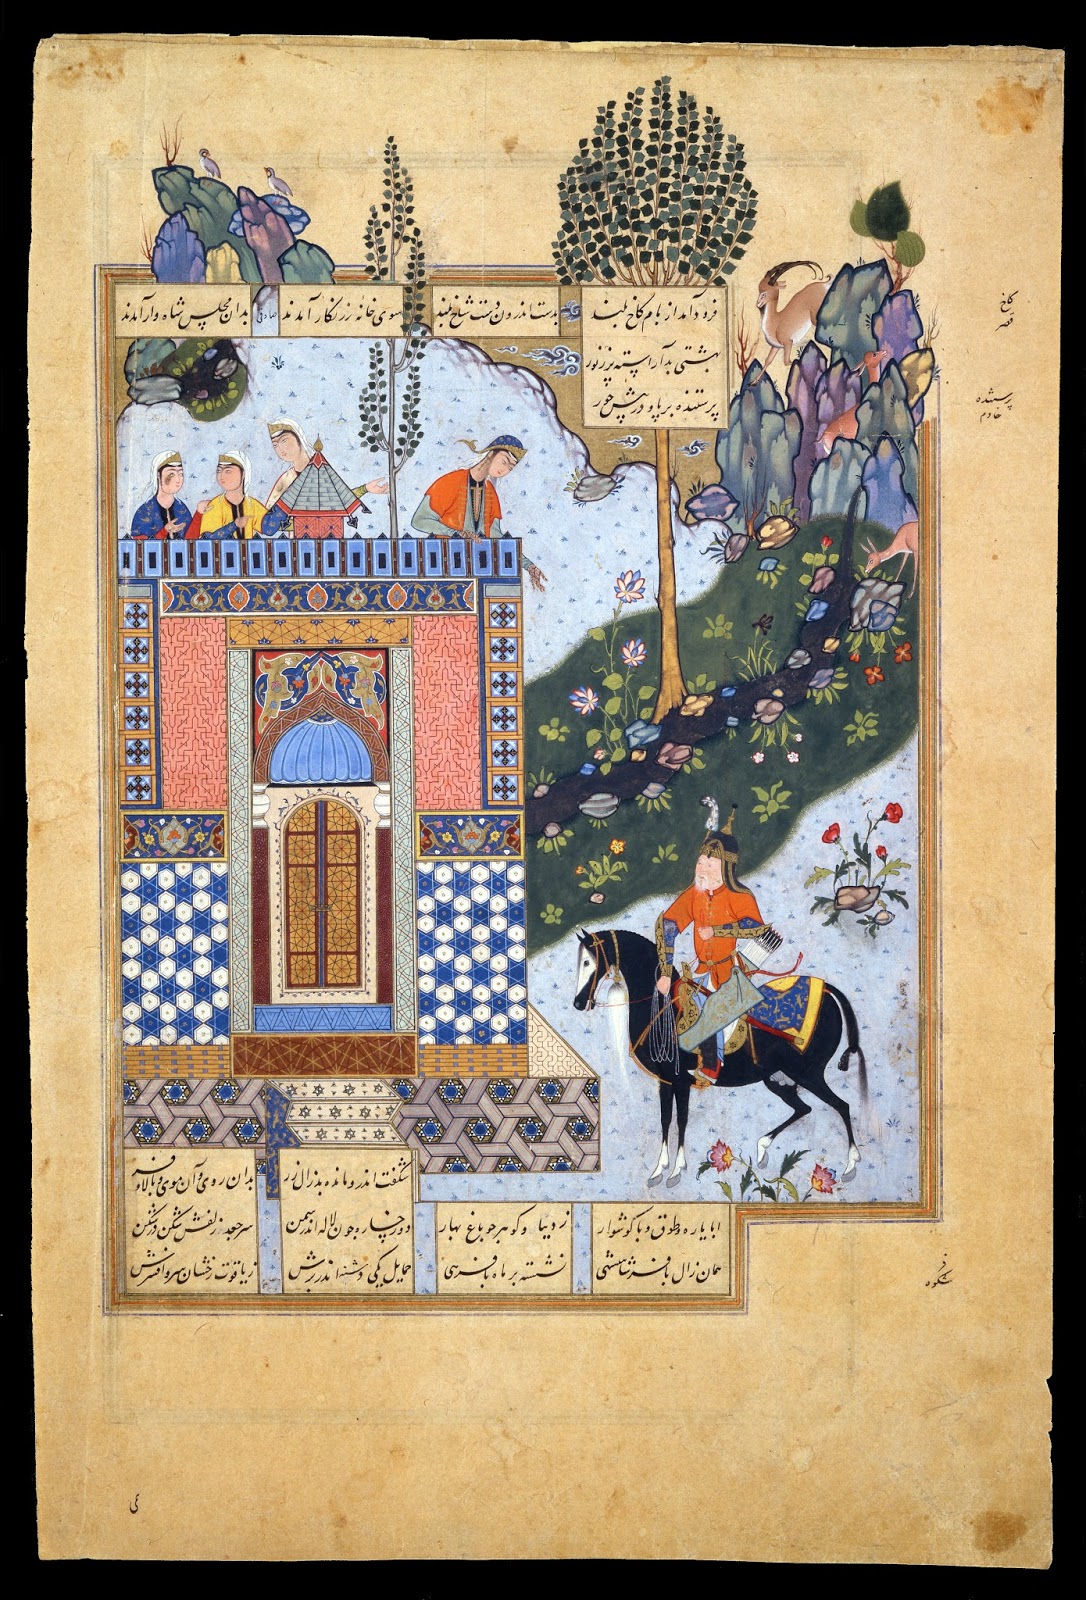 فرود آمد از بام کاخ بلند بدست اندرون دست شاخ بلند سوی خانه زرنگار آمدند صادقی بدان مجلس شاه وار آمدند
بهشتی بد آراسته پر ز نور
پرستنده بر پا و در پیش حور
کاخ
قصر
پرستنده
خادم
شگفت اندرو مانده بد زال زر بدان روی و آن موی و بالا و فر
ابا یاره و طوق و با گوشوار ز دیبا و گوهر چو باغ بهار دو رخساره چون لاله اندر سمن سر جعد زلفش شکن در شکن
همان زال با فر شاهنشهی نشسته بر ماه با فرهی حمایل یکی دشنه اندر برش ز یاقوت رخشان بسر افسرش
فر
شکوه